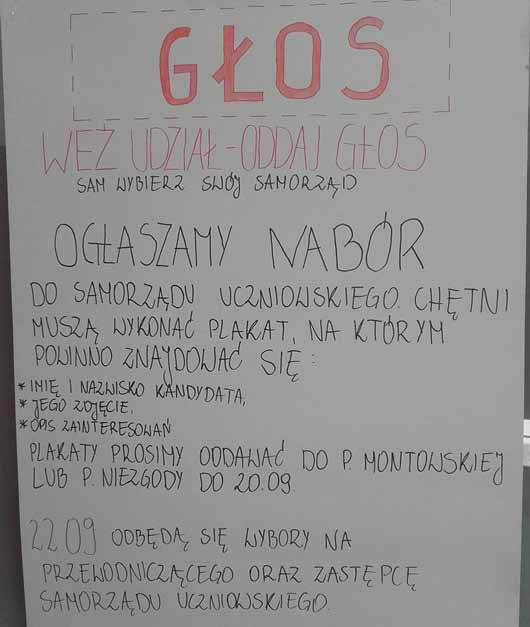 GŁOS
WEŹ UDZIAŁ - ODDAJ GŁOS
SAM WYBIERZ SWÓJ SAMORZĄD
OGŁASZAMY NABÓR
DO SAMORZĄDU UCZNIOWSKIEGO. CHĘTNI
MUSZĄ WYKONAĆ PLAKAT, NA KTÓRYM
POWINNO ZNAJDOWAĆ SIĘ:
* IMIĘ I NAZWISKO KANDYDATA,
* JEGO ZDJĘCIE,
* OPIS ZAINTERESOWAŃ
PLAKATY PROSIMY ODDAWAĆ DO P. MONTOWSKIEJ
LUB P. NIEZGODY DO 20.09.
22.09 ODBĘDĄ SIĘ WYBORY NA
PRZEWODNICZĄCEGO ORAZ ZASTĘPCĘ
SAMORZĄDU UCZNIOWSKIEGO.